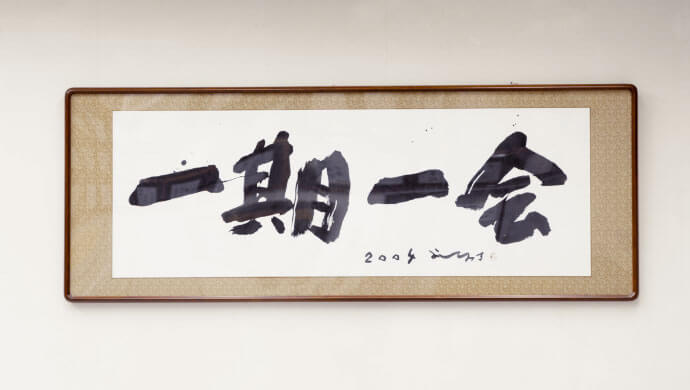 一期一会
2004